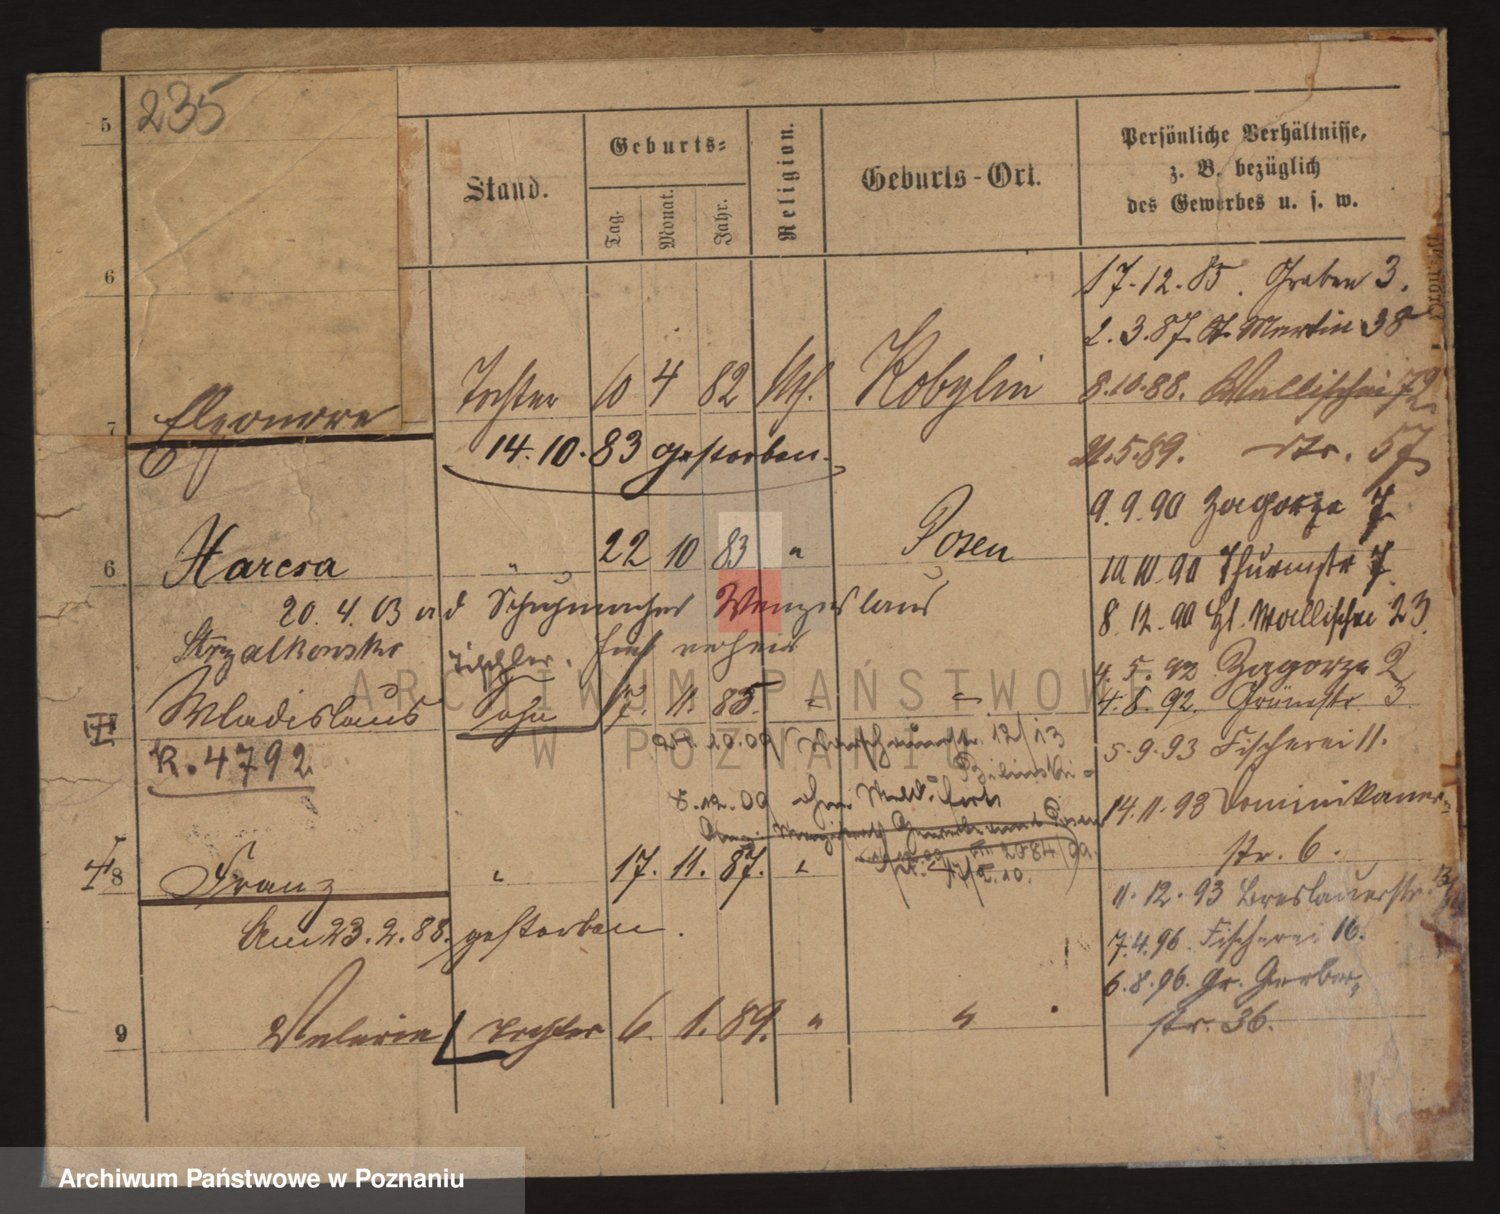 235
5
Stand.
Geburts-
Tag.
Monat.
Jahr.
Religion.
Geburts-Ort.
Persönliche Verhältnisse,
z. B. bezüglich
des Gewerbes u. s. w.
6
17.12.85. Graben 3.
2.3.87. St. Martin 38
7
Eleonore Tochter 10 4 82 kth. Kobylin
8.10.88. Wallischei 72
14.10.83 gestorben.
21.5.89. dto. 57
9.9.90 Zagorze 7
6 Harcsa " 22 10 83 " Posen
10.10.90 Thurmstr 7.
20.4.03 ad Schuhmacher Wenzeslaus
8.12.90 Wallischei 23
Strzalkowski
Tischler.
4.5.92 Zagorze 2
Wladislaus Sohn 7. 11. 85. " "
4.8.92. Grünstr. 3.
R. 4792
12/13
5.9.93 Fischerei 11.
8.12.09 ohne
14.11.93 Dominikaner-
str. 6.
8 Franz " 17. 11. 87. "
2084/09.
11.12.93 Breslauerstr.
Am 23.2.88. gestorben.
7.4.96. Fischerei 16.
6.8.96. Gr. Gerber-
str. 36.
9 Valeria Tochter 6. 1. 89. " "
ARCHIWUM PAŃSTWOWE
W POZNANIU
Archiwum Państwowe w Poznaniu